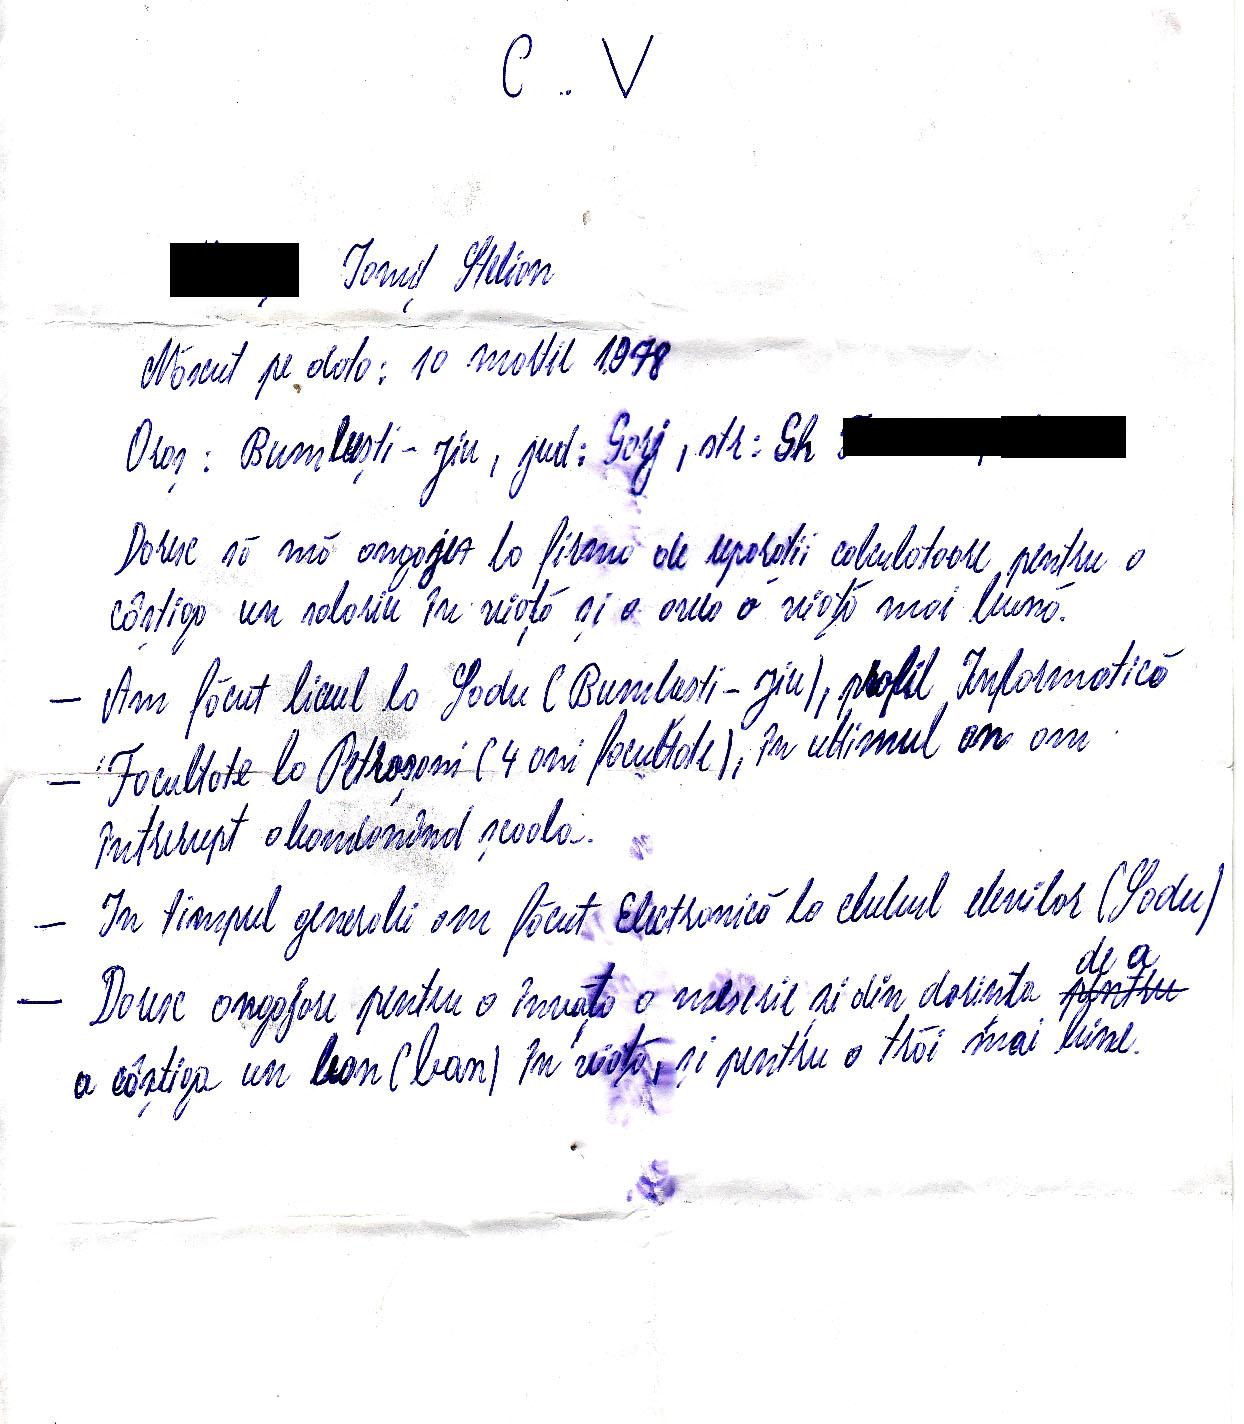 C .. V
Ioniț Stelian
Născut pe data: 10 martie 1978
Oraș: Bumbești-Jiu, jud: Gorj, str: Gh
Doresc să mă angajez la firma de reparatii calculatoare pentru a
câștiga un salariu în viață și a avea o viață mai bună.
— Am făcut liceul la Sadu (Bumbesti-Jiu), profil Informatică
— Facultate la Petroșani (4 ani facultate), în ultimul an am
întrerupt abandonând școala.
— In timpul generalei am făcut Electronică la clubul elevilor (Sadu)
— Doresc angajare pentru a învăța o meserie și din dorința de a pentru
a câștiga un ban (ban) în viață, și pentru a trăi mai bine.